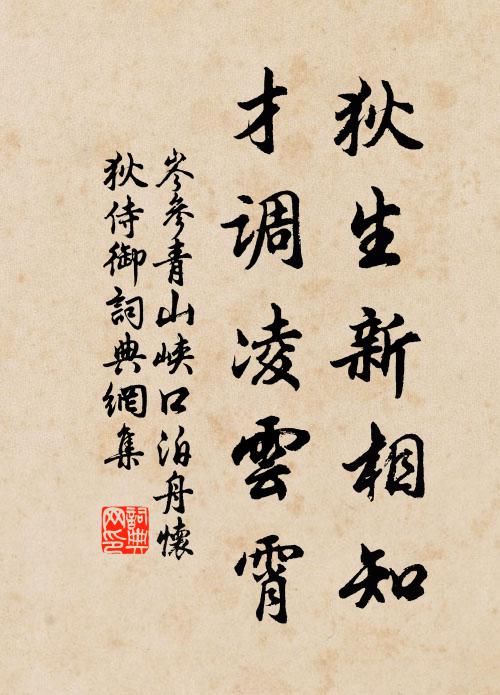 狄生新相知
才调凌雲霄
岑參青山峽口泊舟懷
狄侍御詞典網集
詞典网印